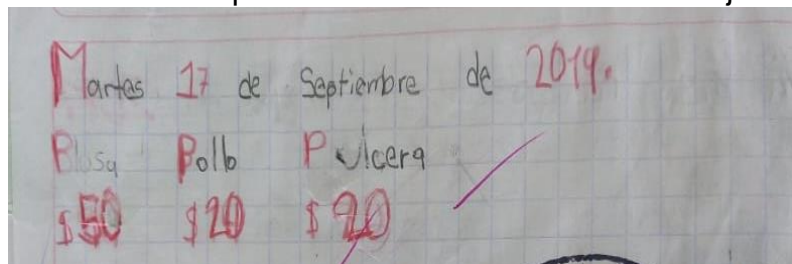 Martes 17 de Septiembre de 2019.
Blusa Pollo Pulcera
$50 $20 $20